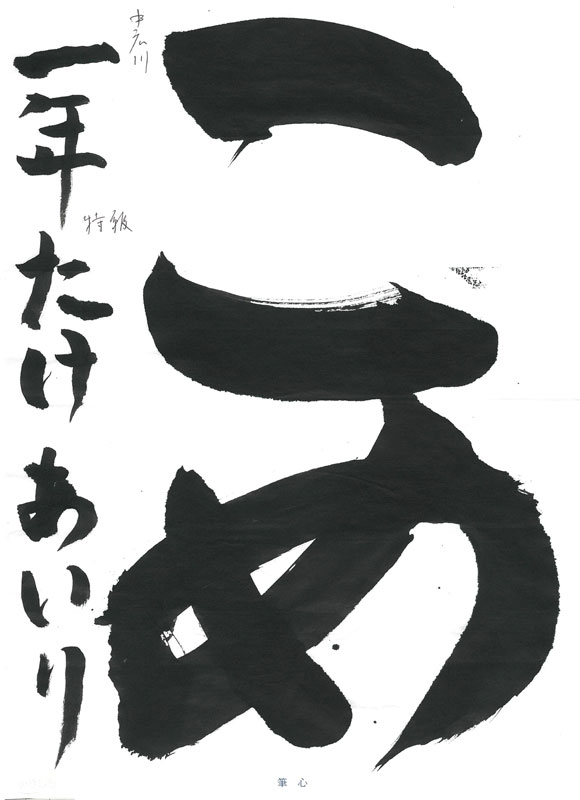 こめ
中広川
特級
一年 たけ あいり
筆心